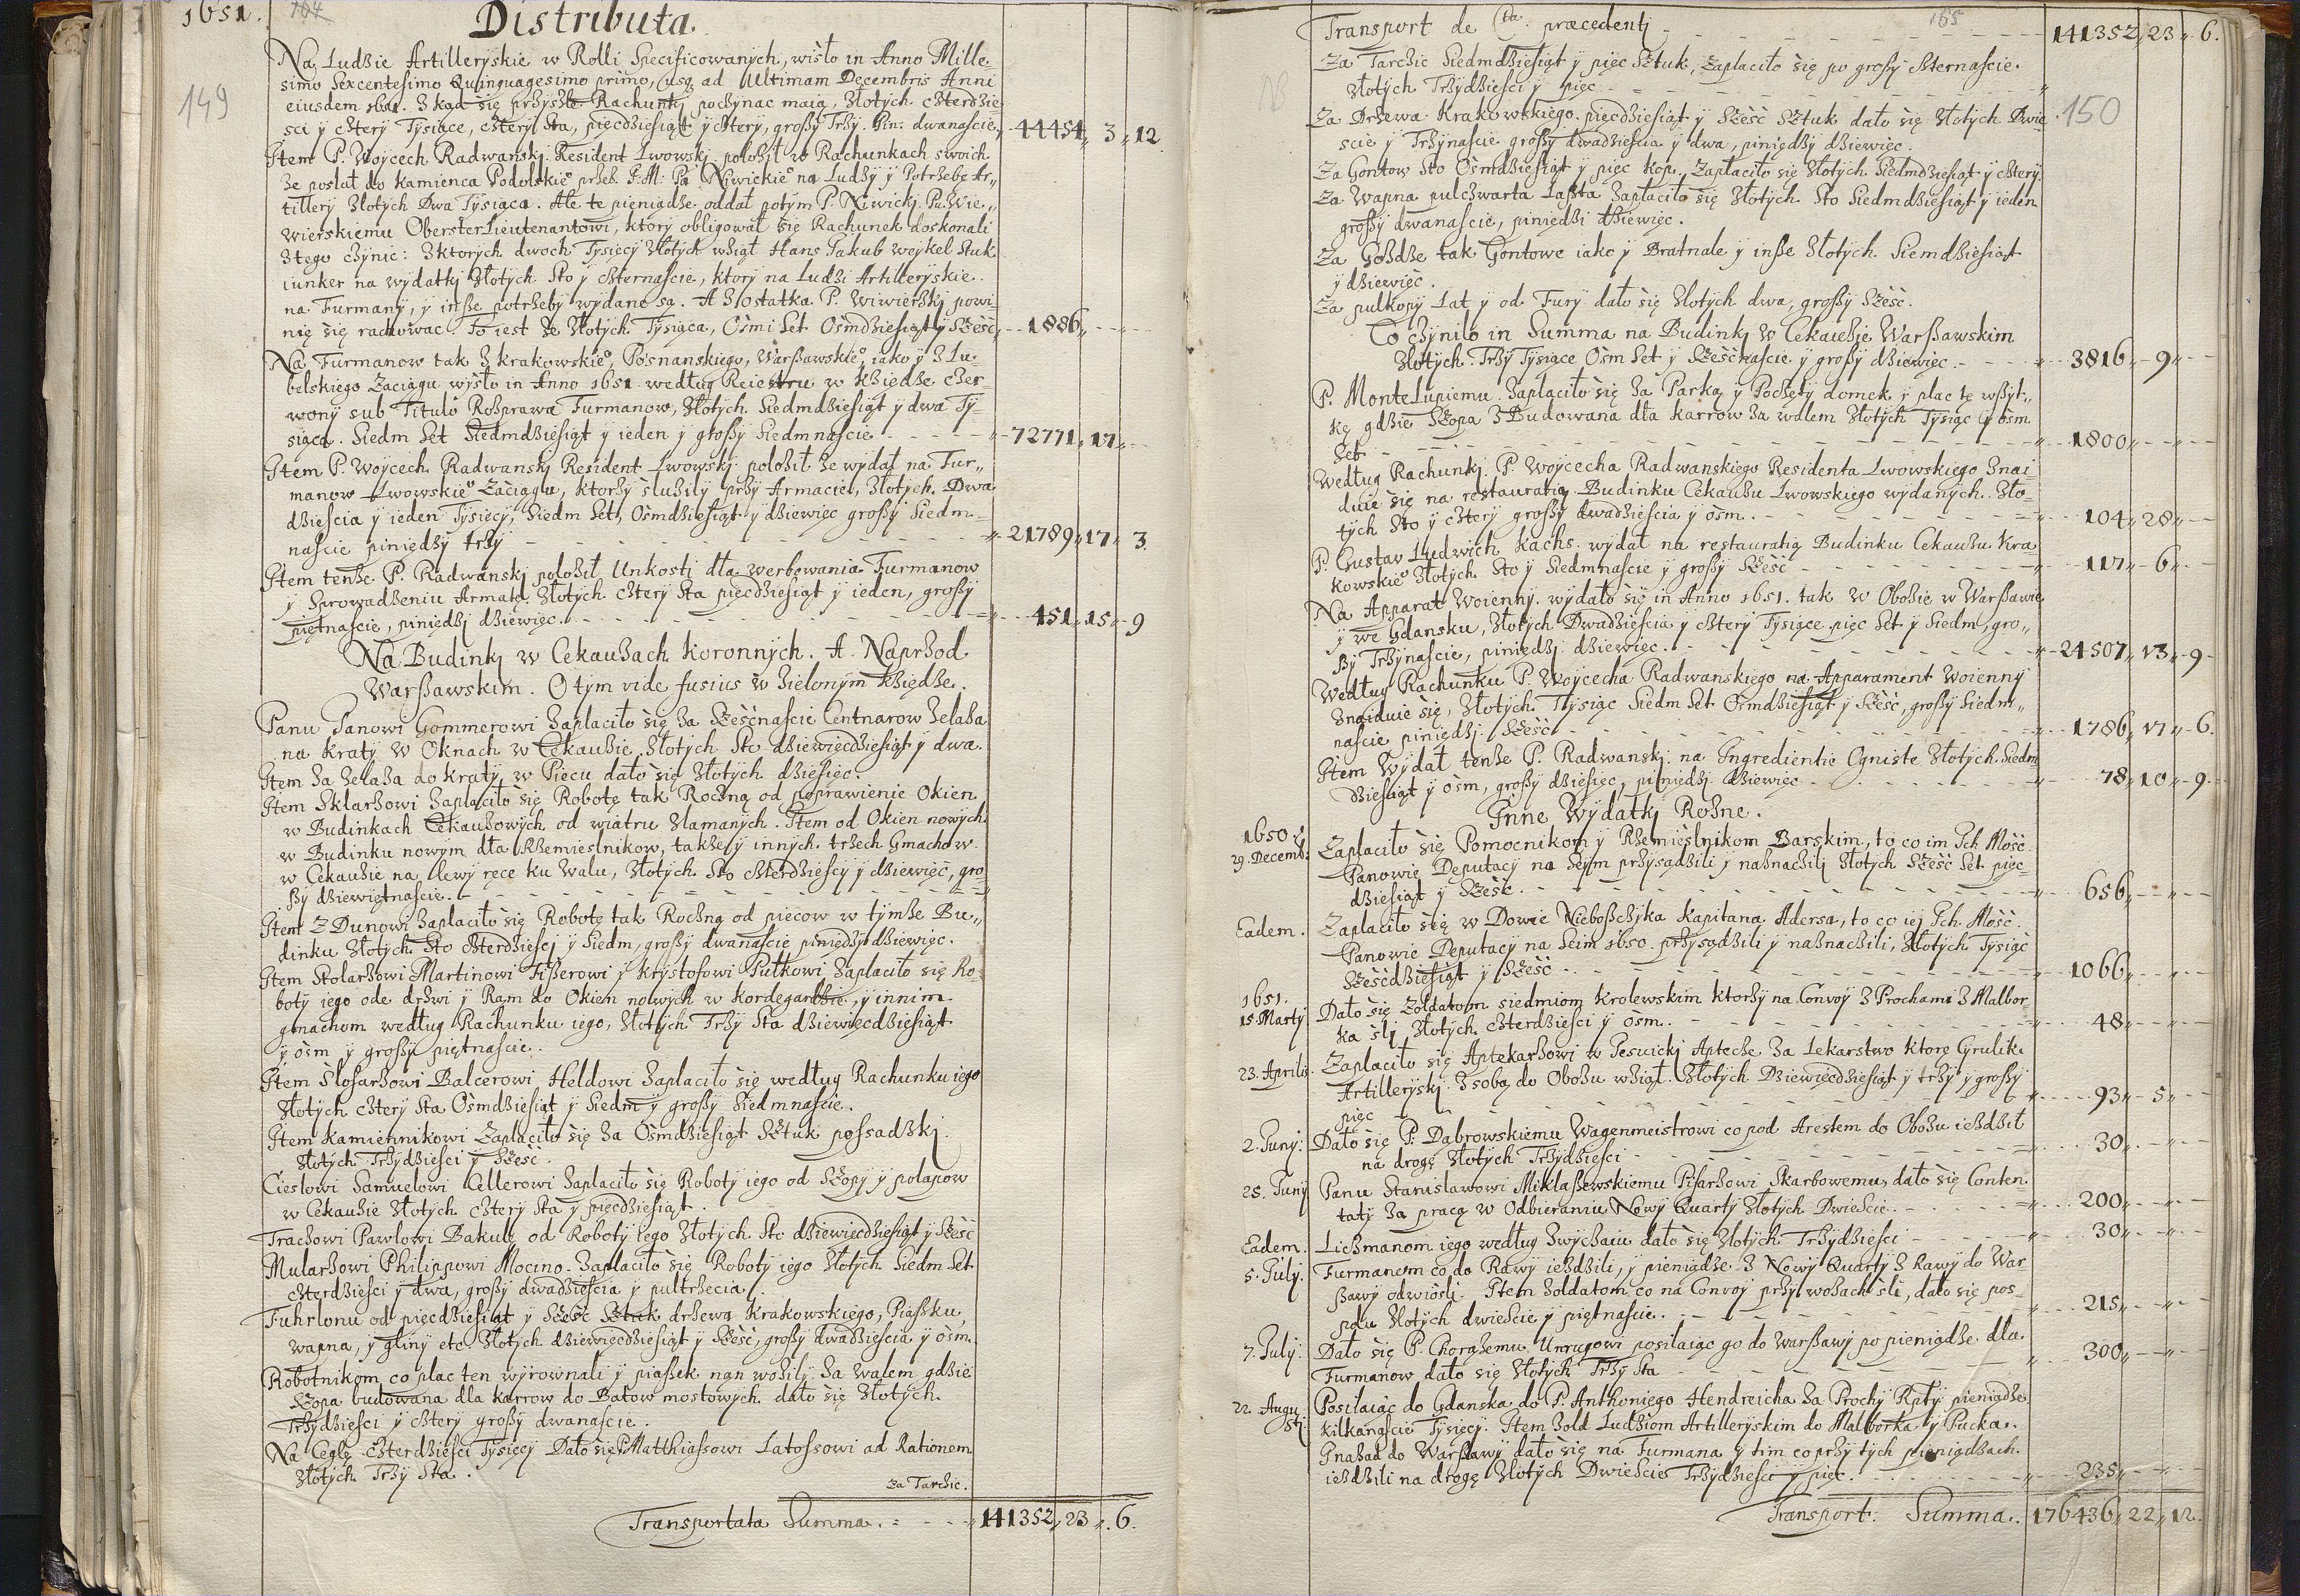 1651. 164 Distributa
149
Na Ludzie Artilleryskie w Rolli Specificowanych, wisło in Anno Mille-
simo Sexcentesimo Quinquagesimo primo, usq ad Ultimam Decembris Anni
eiusdem 1651. Zkąd się przyszłe Rachunki poczynac maią, Złotych czterdzie-
sci y cztery Tysiące, cztery sta, pięcdziesiąt y cztery, groszy Trzy. Pin: dwanascie, 44454 „ 3 „ 12
Item P. Woycech Radwanski Resident Lwowski położił w Rachunkach swoich
że posłał do Kamienca Podolskieº przez J: M: Pa Niwickieº na Ludzy y Potrzebę Ar„
tillery Złotych Dwa Tysiąca. Ale te pieniądze oddał potym P. Niwicki Pu: Wie„
wierskiemu ObersterLieutenantowi, ktory obligował się Rachunek doskonali
Ztego czynic: Zktorych dwoch Tysięcy Złotych wziął Hans Jakub Weykel Stuk
iunker na wydatki Złotych Sto y czternascie, ktory na Ludzi Artilleryskie
na Furmany, y insze potrzeby wydane są. A Zostatka P. Wiwierski powi-
nię się rachowac. To iest ze Złotych Tysiąca, Osmi Set Osmdziesiąt y Szesć, 1886 „ - „ -
Na Furmanow tak Z krakowskieº, Posnanskiego, Warszawskieº, iako y Z Lu-
belskiego Zaciągu wysło in Anno 1651 według Reiestru w Xiędze czer-
wony sub Titulo Rozprawa Furmanow, Złotych Siedmdziesiąt y dwa Ty-
siąca. Siedm Set Siedmdziesiąt y ieden y groszy Siedmnascie - - - „ 72771 „ 17 „ -
Item P. Woycech Radwanski Resident Lwowski położił że wydał na Fur„
manow Lwowskieº Zaciągu, ktorzy służily przy Armacie, Złotych. Dwa
dziescia y ieden Tysięcy, Siedm Set, Osmdziesiąt y dziewięc groszy Siedm-
nascie piniędzy trzy - - - „ 21789 „ 17 „ 3.
Item tenże P. Radwanski położił Unkosti dla werbowania Furmanow
y Sprowadzeniu Armatę. Złotych cztery Sta pięcdziesiąt y ieden, groszy
piętnascie, piniędzi dziewięc. - - - „ 451 „ 15 „ 9
Na Budinki w Cekauzach Koronnych. A. Naprzod
Warszawskim. O tym vide fusius w Zielonym Xiędze.
Panu Panowi Gommerowi Zapłaciło się Za Szesćnascie Centnarow Zelaza
na Kraty w Oknach w Cekauzie Złotych Sto dziewięcdziesiąt y dwa.
Item Za Zelaza do Kraty w Piecu dało się Złotych dziesięc.
Item Sklarzowi Zapłaciło się Robotę tak Roczną od poprawienie Okien
w Budinkach Cekauzowych od wiatru Złamanych. Item od Okien nowych
w Budinku nowym dla Rzemieslnikow, także y innych. trzech Gmachow
w Cekauzie na lewy ręce ku Wału, Złotych. Sto czterdziescy y dziewięć, gro-
szy dziewiętnascie.
Item ZDunowi Zapłaciło się Robotę tak Roczną od piecow w tymże Bu„
dinku Złotych Sto czterdziesci y Siedm, groszy dwanascie piniędzy dziewięc.
Item Stolarzowi Martinowi Fiszerowi y Krystofowi Pułkowi Zapłaciło się Ro-
boty iego ode drzwi y Ram do Okien nowych w kordegardzie, y innim
gmachom według Rachunku iego, Złotych Trzy Sta dziewięcdziesiąt
y osm y groszy piętnascie.
Item Slosarzowi Balcerowi Heldowi Zapłaciło się według Rachunku iego
Złotych cztery Sta Osmdziesiąt y Siedm y groszy Siedmnascie.
Item Kamiennikowi Zapłaciło się Za Osmdziesiąt Sztuk possadzki
Złotych Trzydziesci y Szesć.
Cieslowi Samuelowi Cellerowi Zapłaciło się Roboty iego od Szopy y polapow
w Cekauzie Złotych cztery Sta y pięcdziesiąt.
Trachowi Pawłowi Bakuły od Roboty iego Złotych. Sto dziewięcdziesiąt y Szesć
Mularzowi Philippowi Mocino. Zapłaciło się Roboty iego Złotych Siedm Set
czterdziesci y dwa, groszy dwadziescia y pultrzecia
Fuhrlonu od pięcdziesiąt y Szesć Sztuk drzewa Krakowskiego, Piaszku,
wapna, y gliny etc. Złotych dziewięcdziesiąt y Szesć, groszy dwadziescia y osm.
Robotnikom co plac ten wyrownali y piassek nań wozily Za Wałem gdzie
Szopa budowana dla karrow do Batow mostowych dało się Złotych.
Trzydziesci y cztery groszy dwanascie.
Na Cegłę czterdziesci Tysięcy Dało się P. Matthiassowi Latossowi ad Rationem
Złotych Trzy Sta.
Za Tarcic.
Transportata Summa. - - - „ 141352 „ 23 „ 6.
165
150
Transport de Cta præcedenti - - - 141352 „ 23 „ 6.
Za Tarcic Siedmdziesiąt y pięc Sztuk, Zapłaciło się po groszy czternascie.
Złotych Trzydziesci y pięc
Za Drzewa Krakowskiego pięcdziesiąt y Szesć Sztuk dało się Złotych Dwie
scie y Trzynascie groszy dwadziescia y dwa, piniędzy dziewięc.
Za Gontow Sto Osmdziesiąt y pięc Kop, Zapłaciło się Złotych Siedmdziesiąt y cztery.
Za Wapna pulczwarta Laszta Zapłaciło się Złotych Sto Siedmdziesiąt y ieden
groszy dwanascie, piniędzi dziewięc.
Za Gozdze tak Gontowe iako y Bratnale y insze Złotych. Siemdziesiąt
y dziewięc.
Za pulkopy Lat y od Fury dało się Złotych dwa, groszy Szesć.
Co czyniło in Summa na Budinki w Cekauzie Warszawskim
Złotych Trzy Tysiące Osm Set y Szesćnascie y groszy dziewiec - - - „ 3816 „ 9 „ -
P. MonteLupiemu. Zapłaciło się Za Parką y Poczęty domek y plac te wszyt„
kę gdzie Szopa ZBudowana dla karrow Za wałem Złotych Tysiąc y osm
Set - - - „ 1800 „ - „ -
Według Rachunki P. Woycecha Radwanskiego Residenta Lwowskiego Znai-
duie się na restauratią Budinku Cekauzu Lwowskiego wydanych. Zło-
tych Sto y cztery groszy dwadziescia y osm. - - - „ 104 „ 28 „ -
P. Gustav Ludwich Kachs. wydał na restauratią Budinku Cekauzu Kra-
kowskieº Złotych. Sto y Siedmnascie y groszy Szesć - - - „ 117 „ 6 „ -
Na Apparat Woienny. wydało się in Anno 1651. tak w Obozie w Warszawie
y we Gdansku, Złotych Dwadziescia y cztery Tysiące pięc Set y Siedm, gro„
szy Trzynascie, piniędzi dziewięc. - - - „ 24507 „ 13 „ 9
Według Rachunku P. Woycecha Radwanskiego na Apparament Woienny
Znaiduie się, Złotych Tysiąc Siedm Set Osmdziesiąt y Szesć, groszy Siedm„
nascie piniędzi Szesć - - - „ 1786 „ 17 „ 6.
Item Wydał tenże P. Radwanski na Ingredientie Ogniste Złotych. Siedm-
dziesiąt y osm, groszy dziesięc, piniędzi dziewięc - - - „ 78 „ 10 „ 9.
Inne Wydatki Rożne.
1650
29. Decemb: Zapłaciło się Pomocnikom y Rzemieslnikom Barskim, to co im Ich Mość
Panowie Deputacy na Seym przysądzili y naznaczili Złotych Szesć Set pięc-
dziesiąt y Szesć - - - „ 656 „ - „ -
Eadem. Zapłaciło się w Dowie Nieboszczyka Kapitana Adersa, to co iej Ich Mość
Panowie Deputacy na Seim 1650. przysądzili y naznaczili, Złotych Tysiąc
Szesćdziesiąt y Szesć - - - „ 1066 „ - „ -
1651.
15. Marty Dało się Zołdatom siedmiom Krolewskim ktorzy na Convoy Z Prochami Z Malbor-
ka sli Złotych czterdziesci y osm. - - - „ 48 „ - „ -
23. Aprilis. Zapłaciło się Aptekarzowi w Jesuicki Aptece Za Lekarstwo ktore Grulik
Artilleryski Zsobą do Obozu wziął. Złotych Dziewięcdziesiąt y trzy y groszy
pięc - - - „ 93 „ 5 „ -
2. Juny: Dało się P. Dąbrowskiemu Wagenmeistrowi co pod Arestem do Obozu ieździł
na drogę Złotych Trzydziesci - - - 30 „ - „ -
25. Juny Panu Stanislawowi Miklaszewskiemu Pisarzowi Skarbowemu, dało się Conten
taty Za pracą w Odbieraniu Nowy Quarty Złotych Dwiescie - - - „ 200 „ - „ -
Eadem. Liczmanom iego według Zwyczaiu dało się Złotych Trzydziesci - - - 30 „ - „ -
5. July. Furmanom co do Rawy ieździli, y pieniądze Z Nowy Quarty Z Rawy do War-
szawy odwiosli. Item Zoldatom co na Convoy przy wozach sli, dało się pos-
polu Złotych dwiescie y piętnascie. - - - „ 215 „ - „ -
7. July: Dało się P. Chorążemu Unrugowi posilaiąc go do Warszawy po pieniądze dla
Furmanow dało się Złotych Trzy Sta - - - „ 300 „ - „ -
22. Augu
sti Posilaiąc do Gdanska do P. Anthoniego Hendreicha Za Prochy Rpty pieniądze
kilkanascie Tysięcy. Item Zold Ludziom Artilleryskim do Malborka y Pucka.
Inazad do Warszawy dało się na Furmana y tim co przy tych pieniądzach
ieździli na drogę Złotych Dwiescie Trzydziesci y pięc. - - - „ 235 „ - „ -
Transport: Summa. 176436 „ 22 „ 12.